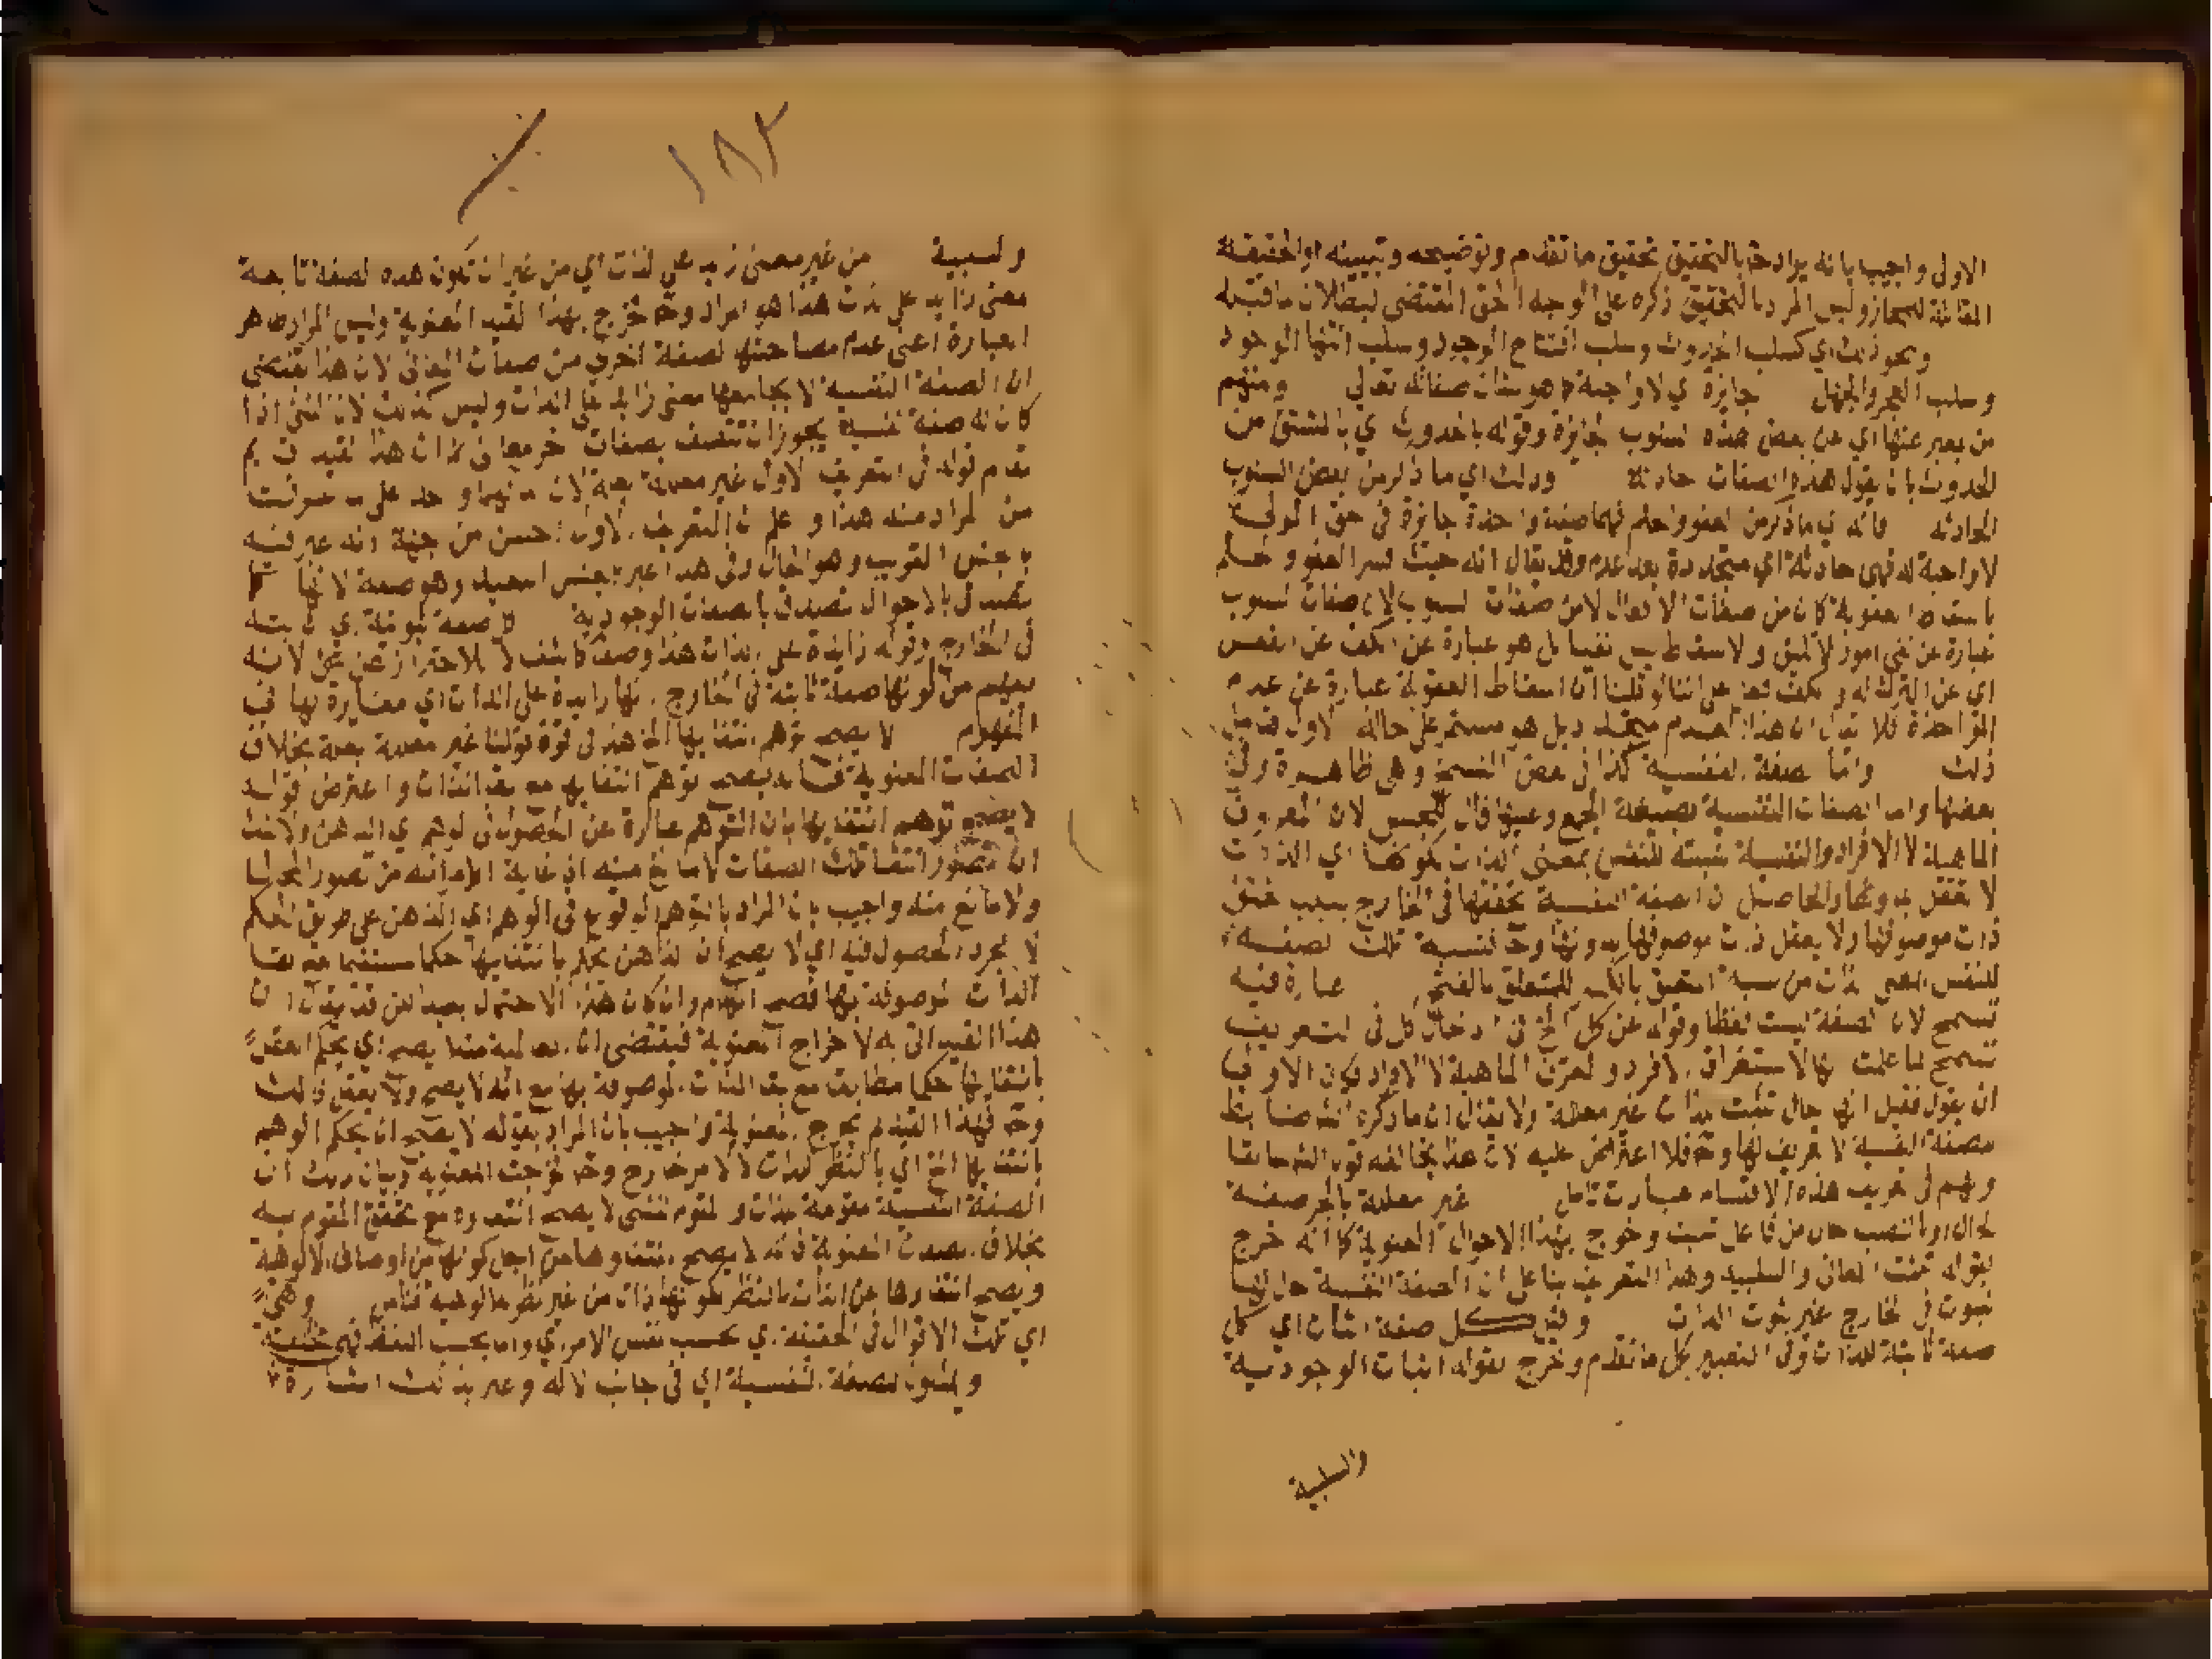 الاول واجيب بانه يراد حـ بالتحقيق تحقيق ما تقدم وتوضيحه وتبيينه او الحقيقة
المقابلة للمجاز وليس المراد بالتحقيق ذكره على الوجه الحق المقتضي لبطلان ما قبله
ونحو ذلك اي كسلب الحدوث وسلب افتتاح الوجود وسلب انتها الوجود
وسلب العجز والجهل جايزة اي لا واجبة كما هو شان صفاته تعالى ومنهم
من يعبر عنها اي عن بعض هذه السلوب الجايزة وقوله بالحدوث اي بالمشتق من
الحدوث بان يقول هذه الصفات حادثة وذلك اي ما ذكر من بعض السلوب
الحادثه فانه اي ما ذكر من العفو والحلم فهما صفة واحدة جايزة في حق المولى
لا واجبة له فهي حادثة اي متجددة بعد عدم وقد يقال انه حيث فسر العفو والحلم
باسقاط العقوبة كان من صفات الافعال لا من صفات السلوب لان صفات السلوب
عبارة عن نفي امور لا تليق والاسقاط ليس نفيا بل هو عبارة عن الكف عن النفس
اي عن الترك له والكف فعل على اننا لو قلنا ان اسقاط العقوبة عبارة عن عدم
المواخذة فلا يقال ان هذا العدم متجدد بل هو مستمر على حاله الاول فتامل
ذلك واما الصفة النفسية كذا في بعض النسخ وهي ظاهرة وفي
بعضها واما الصفات النفسية بصيغة الجمع وعليها فال للجنس لان المعروف
الماهية لا الافراد والنفسية نسبته للنفس بمعنى الذات لكونها اي الذات
لا تعقل بدونها والحاصل ان الصفة النفسية تحققها في الخارج بسبب تحقق
ذات موصوفها ولا يعقل ذات موصوفها بدونها وحـ فنسبة تلك الصفة
للنفس اعني الذات من نسبة المتعلق بالكسر للمتعلق بالفتح عبارة فيه
تسمح لان الصفة ليست لفظا وقوله عن كل الخ في ادخال كل في التعريف
تسمح لما علمت انها لاستغراق الافراد والتعريف للماهية لا للافراد فكان الاولى
ان يقول فقيل انها حال تثبت للذات غير معللة ولا يقال ان ما ذكره الشـ ضابط
للصفة النفسية لا تعريف لها وحـ فلا اعتراض عليه لان هذا يخالفه قول الشـ سابقا
ولهم في تعريف هذه الاقسام عبارات تامل غير معللة بالجر صفة
لحال او النصب حال من فاعل تثبت وخرج بهذا الاحوال المعنوية كما انه خرج
بقوله تثبت المعاني والسلبية وهذا التعريف بنا على ان الصفة النفسية حال لها
ثبوت في الخارج غير ثبوت الذات وقيل كل صفة اثبات اي كل
صفة ثابتة للذات وفي التعبير بكل ما تقدم وخرج بقوله اثبات الوجودية
والسلبية
١٨٢
والسلبية من غير معنى زايد على الذات اي من غير ان تكون هذه الصفة تابعة
معنى زايد على الذات هذا هو المراد وحـ فخرج بهذا القيد المعنوية وليس المراد ظاهر
العبارة اعني عدم مصاحبتها لصفة اخرى من صفات المعاني لان هذا يقتضي
ان الصفة النفسية لا يجامعها معنى زايد على الذات وليس كذلك لان الشئ اذا
كان له صفة نفسية يجوز ان تتصف بصفات اخر معان
تقدم قوله في التعريف الاول غير معللة بعلة لان
من المراد منه هذا واعلم ان التعريف الاول احسن من جهة انه عبر فيه
بالجنس القريب وهو الحال وفي هذا عبر بالجنس البعيد وهو صفة لانها كما
تصدق بالاحوال تصدق بالصفات الوجودية صفة ثبوتية اي ثابته
في الخارج وقوله زايدة على الذات هذا وصف كاشف لا للاحتراز عن شئ لانه
يفهم من كونها صفة ثابتة في الخارج انها زايدة على الذات اي مغايرة لها في
المفهوم لا يصح توهم انتفائها الخ هذا في قوة قولنا غير معللة بعلة بخلاف
الصفات المعنوية فانه يصح توهم انتفايها مع بقا الذات واعترض قوله
لا يصح توهم انتفايها بان التوهم عبارة عن الحصول في الوهم اي الذهن ولا شك
ان تصور انتفا تلك الصفات لا مانع منه اذ غاية الامر انه من تصور المحال
ولا مانع منه واجيب بان المراد بالتوهم الوقوع في الوهم اي الذهن على طريق الحكم
لا مجرد الحصول فيه اي لا يصح ان الذهن يحكم بانتفايها حكما مستقيما مع بقا
الذات الموصوفة بها فصح الكلام وان كان هذا الاحتمال بعيدا لكن قد يقال ان
هذا القيد اتى به لاخراج المعنوية فيقتضي ان العالمية مثلا يصح اي يحكم العقل
بانتفايها حكما مطابقا مع بقا الذات الموصوفة بها مع انه لا يصح ولا يعقل ذلك
وحـ فهذا القيد لم يخرج المعنوية واجيب بان المراد بقوله لا يصح ان يحكم الوهم
بانتفايها الخ اي بالنظر للذات لا لامر خارج وحـ خرجت المعنوية وبيان ذلك ان
الصفة النفسية مقومة للذات والمقوم للشئ لا يصح انتفاوه مع تحقق المقوم به
بخلاف الصفات المعنوية فانه لا يصح انتفاوها من اجل كونها من اوصاف الالوهية
ويصح انتفاوها عن الذات بالنظر لكونها ذات من غير نظر للالوهية فتامل وهي
اي تلك الاقوال في الحقيقة اي بحسب نفس الامر اي واما بحسب اللفظ فهي مختلفة
والمثبتون للصفة النفسية اي في جانب الاله وعبر بذلك اشارة